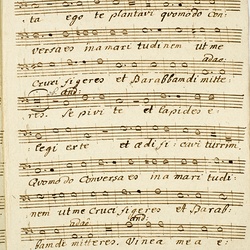 ita ego te plantavi quomodo con:
versa es in amari tudinem ut me
adag:
Cruci figeres et Barabbam di mitte:
And:
res. Se pivi te et lapides e:
legi ex te et ædi fi: cavi turrim.
Quomodo Conversa es in amari tudi:
adag:
nem ut me Cruci figeres et Barab:
And:
bam di mitteres. Vinea mea e: